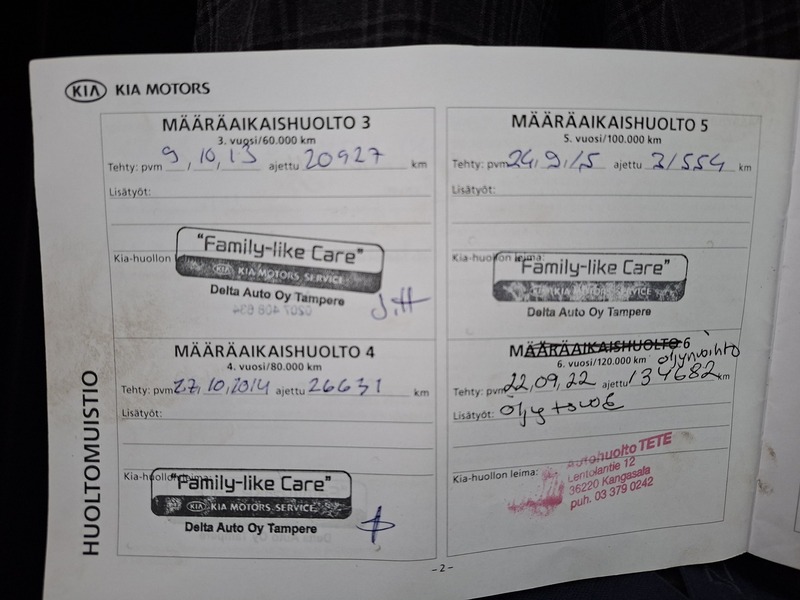 KIA KIA MOTORS
HUOLTOMUISTIO
MÄÄRÄAIKAISHUOLTO 3
3. vuosi/60.000 km
Tehty: pvm 9 / 10 / 13 ajettu 20927 km
Lisätyöt:
Kia-huollon
"Family-like Care"
KIA KIA MOTORS SERVICE
Delta Auto Oy Tampere
0207 408 634
J.H
MÄÄRÄAIKAISHUOLTO 4
4. vuosi/80.000 km
Tehty: pvm 27.10.2014 ajettu 26631 km
Lisätyöt:
Kia-huollon leima:
"Family-like Care"
KIA KIA MOTORS SERVICE
Delta Auto Oy Tampere
MÄÄRÄAIKAISHUOLTO 5
5. vuosi/100.000 km
Tehty: pvm 24.9.15 ajettu 31554 km
Lisätyöt:
Kia-huollon leima:
"Family-like Care"
KIA KIA MOTORS SERVICE
Delta Auto Oy Tampere
MÄÄRÄAIKAISHUOLTO 6
öljynvaihto
6. vuosi/120.000 km
Tehty: pvm 22,09,22 ajettu 134682 km
Lisätyöt: öljy + suod
Kia-huollon leima:
Autohuolto TETE
Lentolantie 12
36220 Kangasala
puh. 03 379 0242
-2-